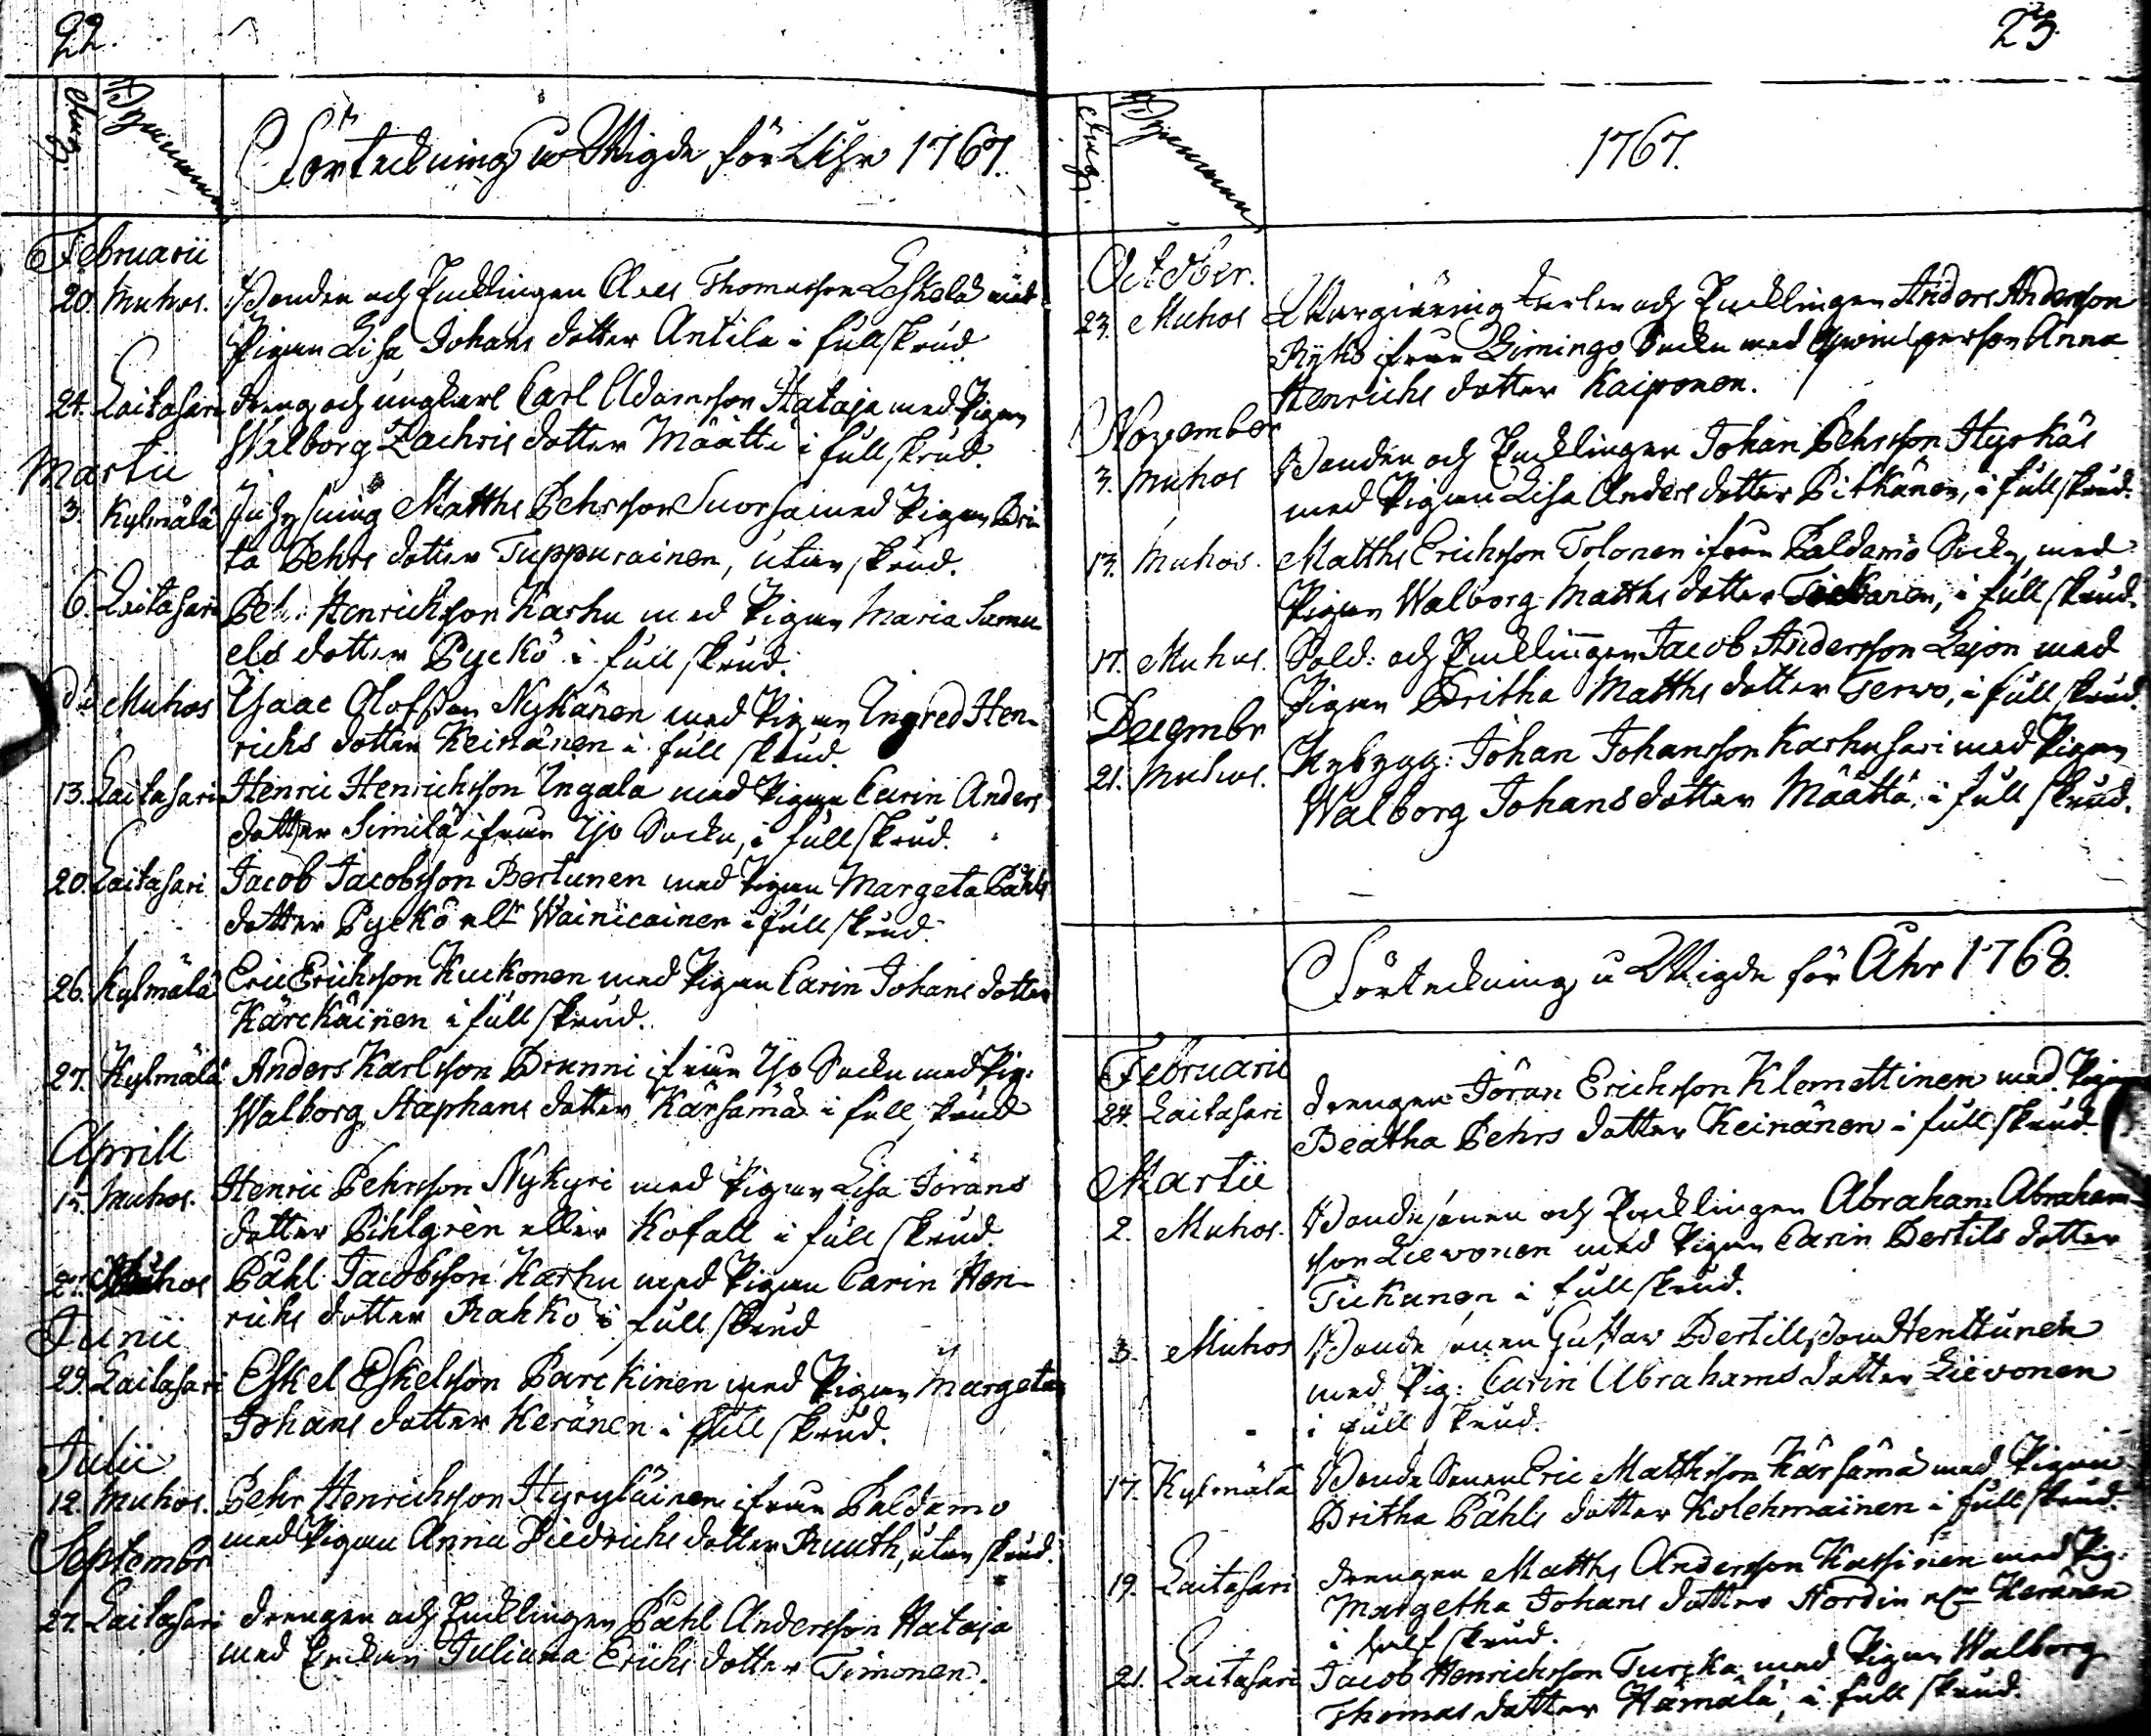 22.
Dag. Byarnamn
Förteckning å Wigde för Åhr 1767.
Februarii
20. Muhos. Bonden och Encklingen Claes Thomasson Leskelä med
Pigan Lisa Johans dotter Antila i full skrud.
24. Laitasari dreng och ungkarl Carl Adamsson Hataja med Pigan
Walborg Zachris dotter Määttä i full skrud.
Martii
3. Kylmälä Inhysning Matths Pehrsson Suorsa med Pigan Bri-
ta Pehrs dotter Tuppurainen, utan skrud.
6. Laitasari Pehr Henrichsson Karhu med Pigan Maria Samu-
els dotter Pyckö i full skrud.
Muhos Isaac Olofsson Nykänen med Pigan Ingred Hen-
richs dotter Keinänen i full skrud.
13. Laitasari Henric Henrichsson Ingala med Pigan Carin Anders
dotter Similä ifrån Ijo Sockn, i full skrud.
20. Laitasari Jacob Jacobsson Bertunen med Pigan Margeta Påhls
dotter Pyckö ellr Wainicainen i full skrud.
26. Kylmälä Eric Erichsson Kuckonen med Pigan Carin Johans dotter
Kärckäinen i full skrud.
27. Kylmälä Anders Karlsson Brunni ifrån Ijo Sockn med Pig:
Walborg Staphans dotter Kärsämä i full skrud
Aprill
15. Muhos. Henric Pehrsson Nykyri med Pigan Lisa Jörans
dotter Pihlgrèn eller Kofall i full skrud.
27. Muhos Påhl Jacobsson Karhu med Pigan Carin Hen-
richs dotter Rahko i full skrud
Junii
29. Laitasari Eskel Eskelsson Parckinen med Pigan Margeta
Johans dotter Keränen i full skrud.
Julii
12. Muhos. Pehr Henrichsson Hyryläinen ifrån Paldamo
med Pigan Anna Diedrichs dotter Ruuth, utan skrud.
Septembr
27. Laitasari drengen och Encklingen Påhl Andersson Hataja
med Enckan Juliana Erichs dotter Timonen.
23.
Dag. Byarnamn
1767.
October.
23. Muhos Wargiering karlen och Encklingen Anders Andersson
Ryhs ifrån Limingo Sockn med qwinsperson Anna
Henrichs dotter Kaiponen.
November
3. Muhos Bonden och Encklingen Johan Pehrsson Hyrkäs
med Pigan Lisa Anders dotter Pitkänen, i full skrud.
13. Muhos. Matths Erichsson Tolonen ifrån Paldamo Sockn med
Pigan Walborg Matths dotter Tickanen, i full skrud.
17. Muhos. Sold: och Encklingen Jacob Andersson Lejon med
Pigan Britha Matths dotter Terwo, i full skrud.
Decembr
21. Muhos. Nybygg: Johan Johansson Karhusari med Pigan
Walborg Johans dotter Määttä, i full skrud.
Förteckning å Wigde för Åhr 1768.
Februarii
24. Laitasari drengen Jöran Erichsson Klemettinen med Pigan
Beatha Pehrs dotter Keinänen i full skrud.
Martii
2. Muhos. Bondesonen och Encklingen Abraham Abraham-
sson Liewonen med Pigan Carin Bertils dotter
Tickanen i full skrud.
3. Muhos Bonde sonen Gustaw Bertillsson Henttunen
med Pig: Carin Abrahams dotter Lievonen
i full skrud.
17. Kylmälä Bonde Sonen Eric Matthsson Kärsämä med Pigan
Britha Påhls dotter Kolehmainen i full skrud.
19. Laitasari drengen Matths Andersson Kassinen med Pig:
Margetha Johans dotter Nordin ellr Keränen
i half skrud.
21. Laitasari Jacob Henrichsson Turcka med Pigan Walborg
Thomas dotter Hämälä, i full skrud.